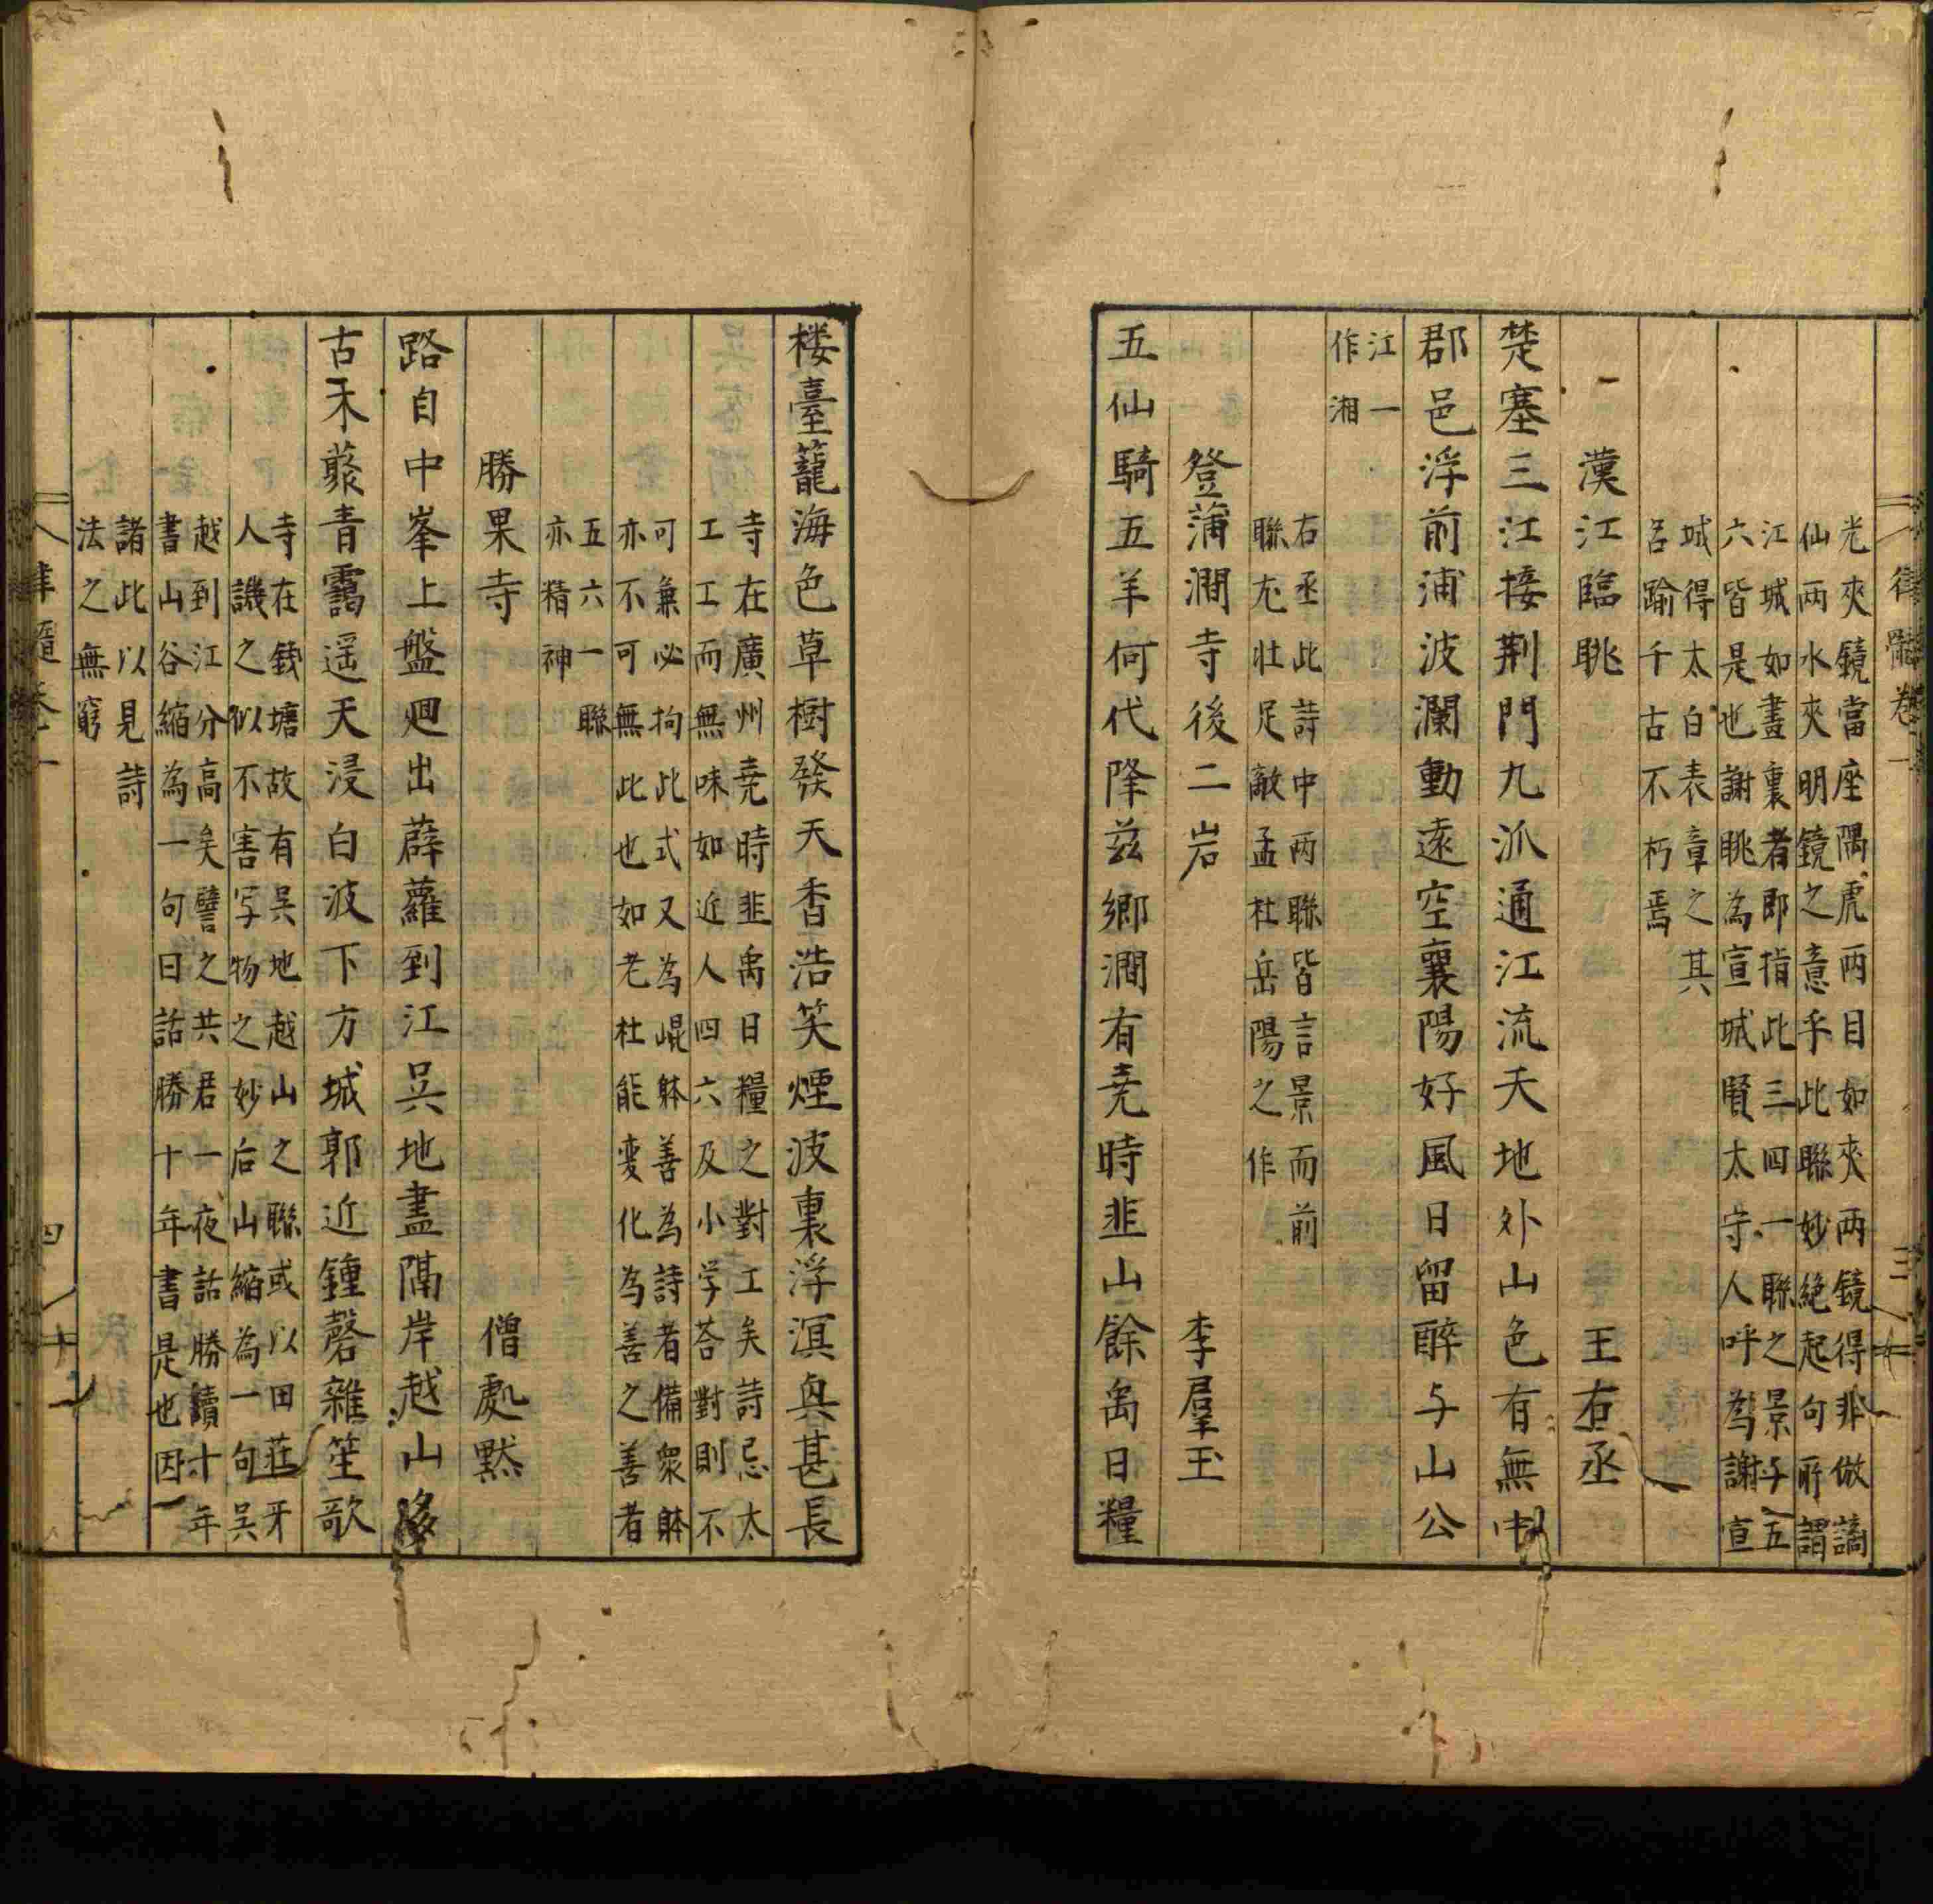 律髓卷一
三
光夾鏡當座隅虎兩目如夾兩鏡得非倣謫
仙兩水夾明鏡之意乎此聯妙絶起句所謂
江城如畫裏者即指此三四一聯之景与五
六皆是也謝眺為宣城賢太守人呼為謝宣
城得太白表章之其
名踰千古不朽焉
漢江臨眺 王右丞
楚塞三江接荆門九派通江流天地外山色有無中
郡邑浮前浦波瀾動遠空襄陽好風日留醉与山公
江一
作湘
右丞此詩中两聯皆言景而前
聯尤壯足敵孟杜岳陽之作
登蒲澗寺後二岩 李羣玉
五仙騎五羊何代降兹鄉澗有堯時韭山餘禹日糧
楼臺籠海色草樹發天香浩笑煙波裏浮溟興甚長
寺在廣州堯時韭禹日糧之對工矣詩忌太
工工而無味如近人四六及小学荅對則不
可兼必拘此式又為崐體善為詩者備衆體
亦不可無此也如老杜能変化為善之善者
五六一聯
亦精神
勝果寺 僧處黙
路自中峯上盤廻出薜蘿到江吳地盡隔岸越山多
古木叢青靄遥天浸白波下方城郭近鍾磬雜笙歌
寺在錢塘故有吳地越山之聯或以田莊牙
人譏之似不害写物之妙后山縮為一句吳
越到江分高矣譬之共君一夜話勝讀十年
書山谷縮為一句曰話勝十年書是也因
諸此以見詩
法之無窮
律髓卷一
四